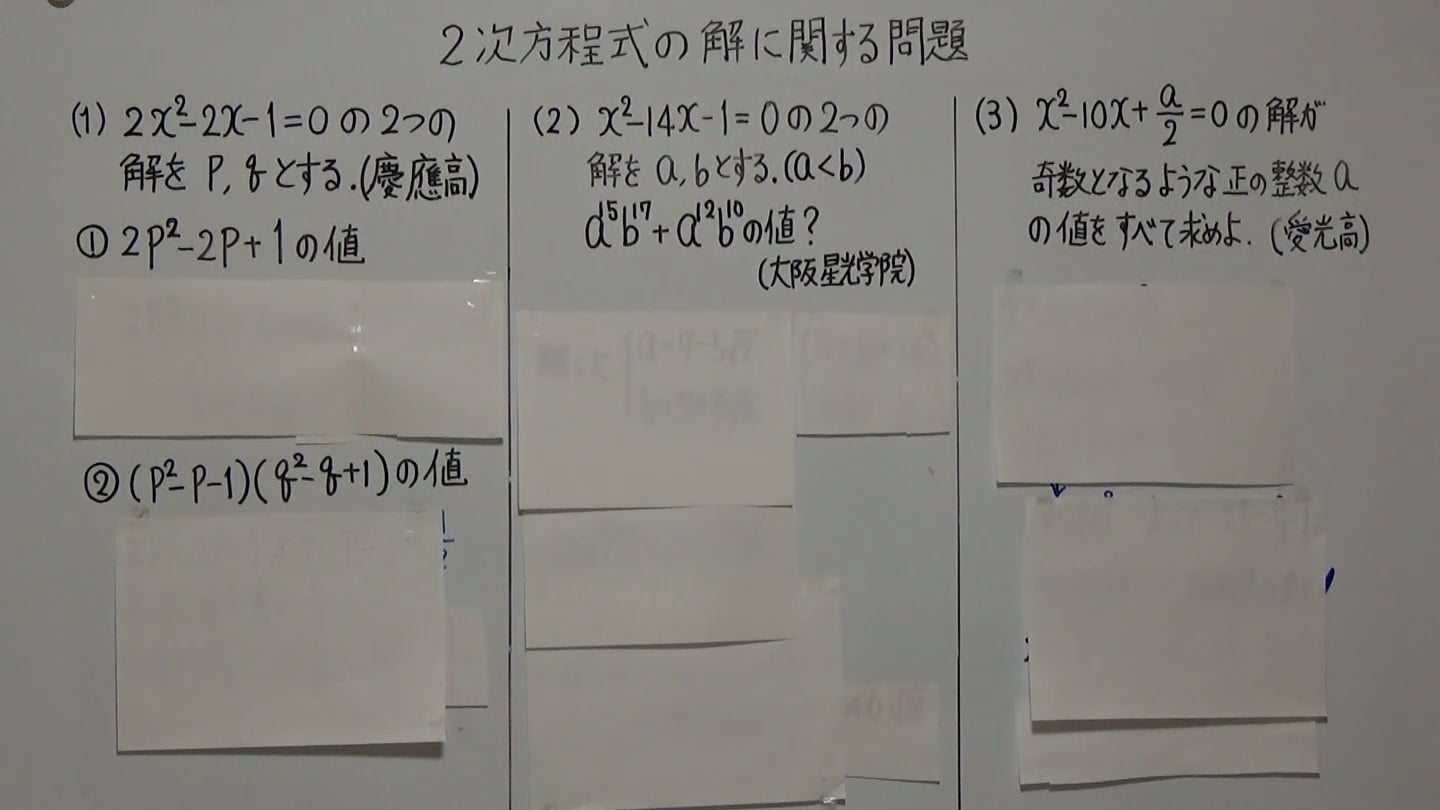 2次方程式の解に関する問題
(1) 2x²-2x-1=0の2つの
解をP, qとする.(慶應高)
① 2P²-2P+1の値
② (P²-P-1)(q²-q+1)の値
(2) x²-14x-1=0の2つの
解をa,bとする.(a<b)
a¹⁵b¹⁷+a¹²b¹⁰の値?
(大阪星光学院)
(3) x²-10x+a/2=0の解が
奇数となるような正の整数a
の値をすべて求めよ. (愛光高)